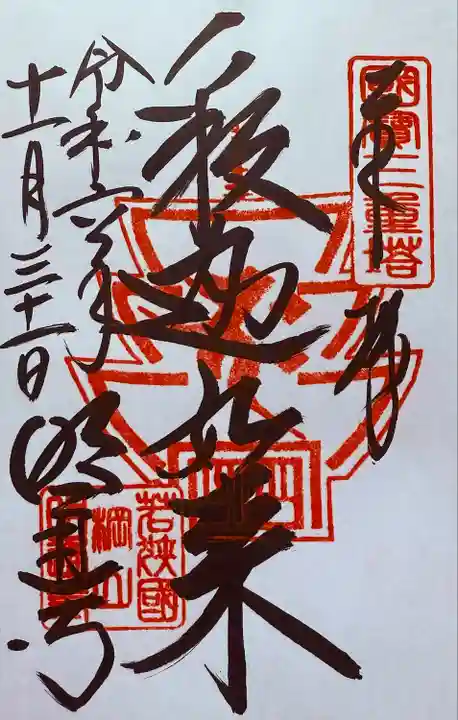 國寶三重塔
奉拝
釈迦如来
令和六年
十一月三十一日
明通寺
若狭國
棡山